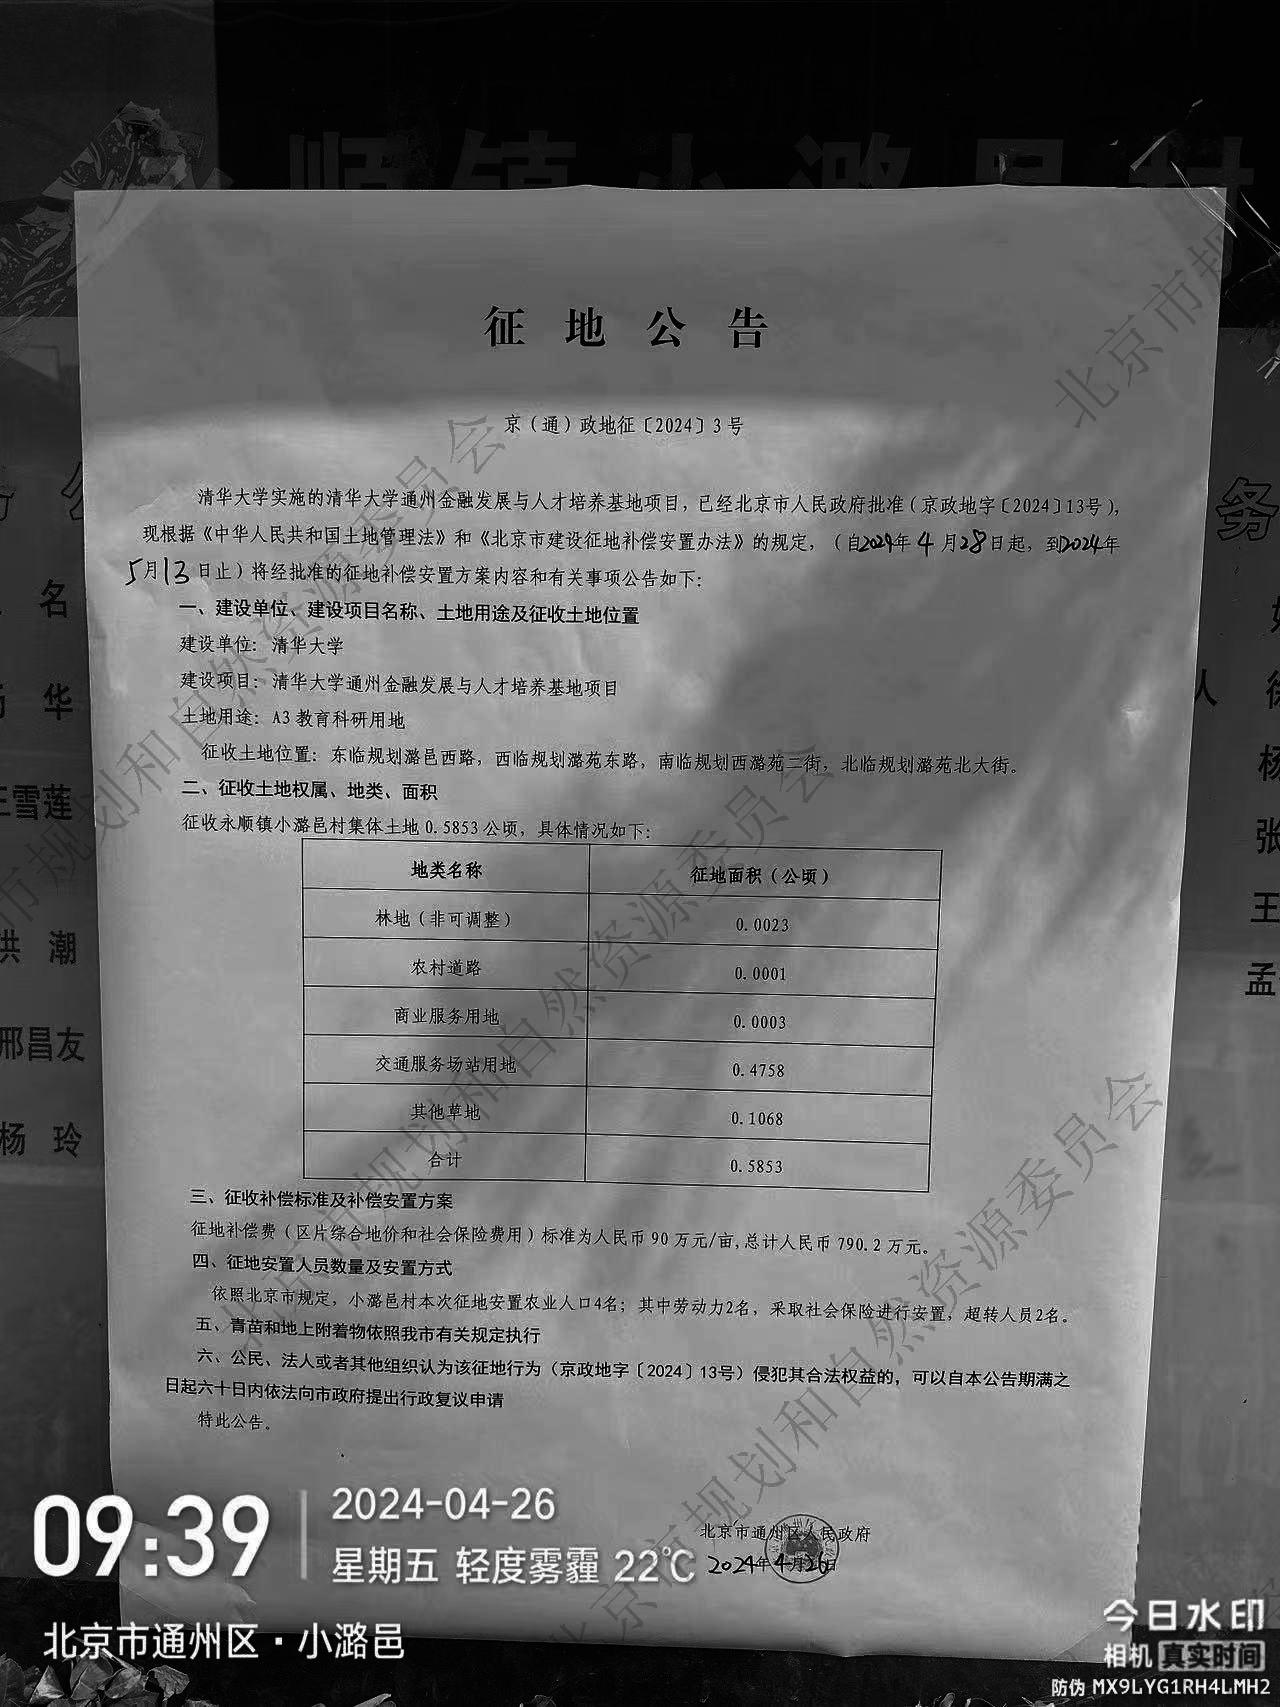 顺镇小潞邑村
征地公告
京（通）政地征〔2024〕3号
清华大学实施的清华大学通州金融发展与人才培养基地项目，已经北京市人民政府批准（京政地字〔2024〕13号），
现根据《中华人民共和国土地管理法》和《北京市建设征地补偿安置办法》的规定，（自2024年4月28日起，到2024年
5月13日止）将经批准的征地补偿安置方案内容和有关事项公告如下：
一、建设单位、建设项目名称、土地用途及征收土地位置
建设单位：清华大学
建设项目：清华大学通州金融发展与人才培养基地项目
土地用途：A3教育科研用地
征收土地位置：东临规划潞邑西路，西临规划潞苑东路，南临规划西潞苑二街，北临规划潞苑北大街。
二、征收土地权属、地类、面积
征收永顺镇小潞邑村集体土地0.5853公顷，具体情况如下：
地类名称 征地面积（公顷）
林地（非可调整） 0.0023
农村道路 0.0001
商业服务用地 0.0003
交通服务场站用地 0.4758
其他草地 0.1068
合计 0.5853
三、征收补偿标准及补偿安置方案
征地补偿费（区片综合地价和社会保险费用）标准为人民币90万元/亩，总计人民币790.2万元。
四、征地安置人员数量及安置方式
依照北京市规定，小潞邑村本次征地安置农业人口4名；其中劳动力2名，采取社会保险进行安置，超转人员2名。
五、青苗和地上附着物依照我市有关规定执行
六、公民、法人或者其他组织认为该征地行为（京政地字〔2024〕13号）侵犯其合法权益的，可以自本公告期满之
日起六十日内依法向市政府提出行政复议申请
特此公告。
北京市通州区人民政府
2024年4月26日
北京市规划和自然资源委员会
名
华
王雪莲
洪潮
邢昌友
杨玲
务
人
杨
张
王
孟
09:39
2024-04-26
星期五 轻度雾霾 22℃
北京市通州区·小潞邑
今日水印
相机 真实时间
防伪 MX9LYG1RH4LMH2